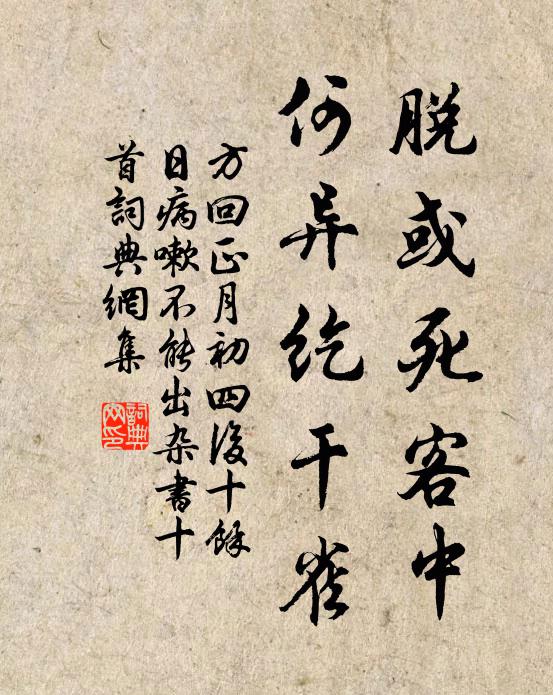 脱或死客中
何异纥干雀
方回正月初四後十餘
日病嗽不能出杂書十
首詞典網集
詞典
网印